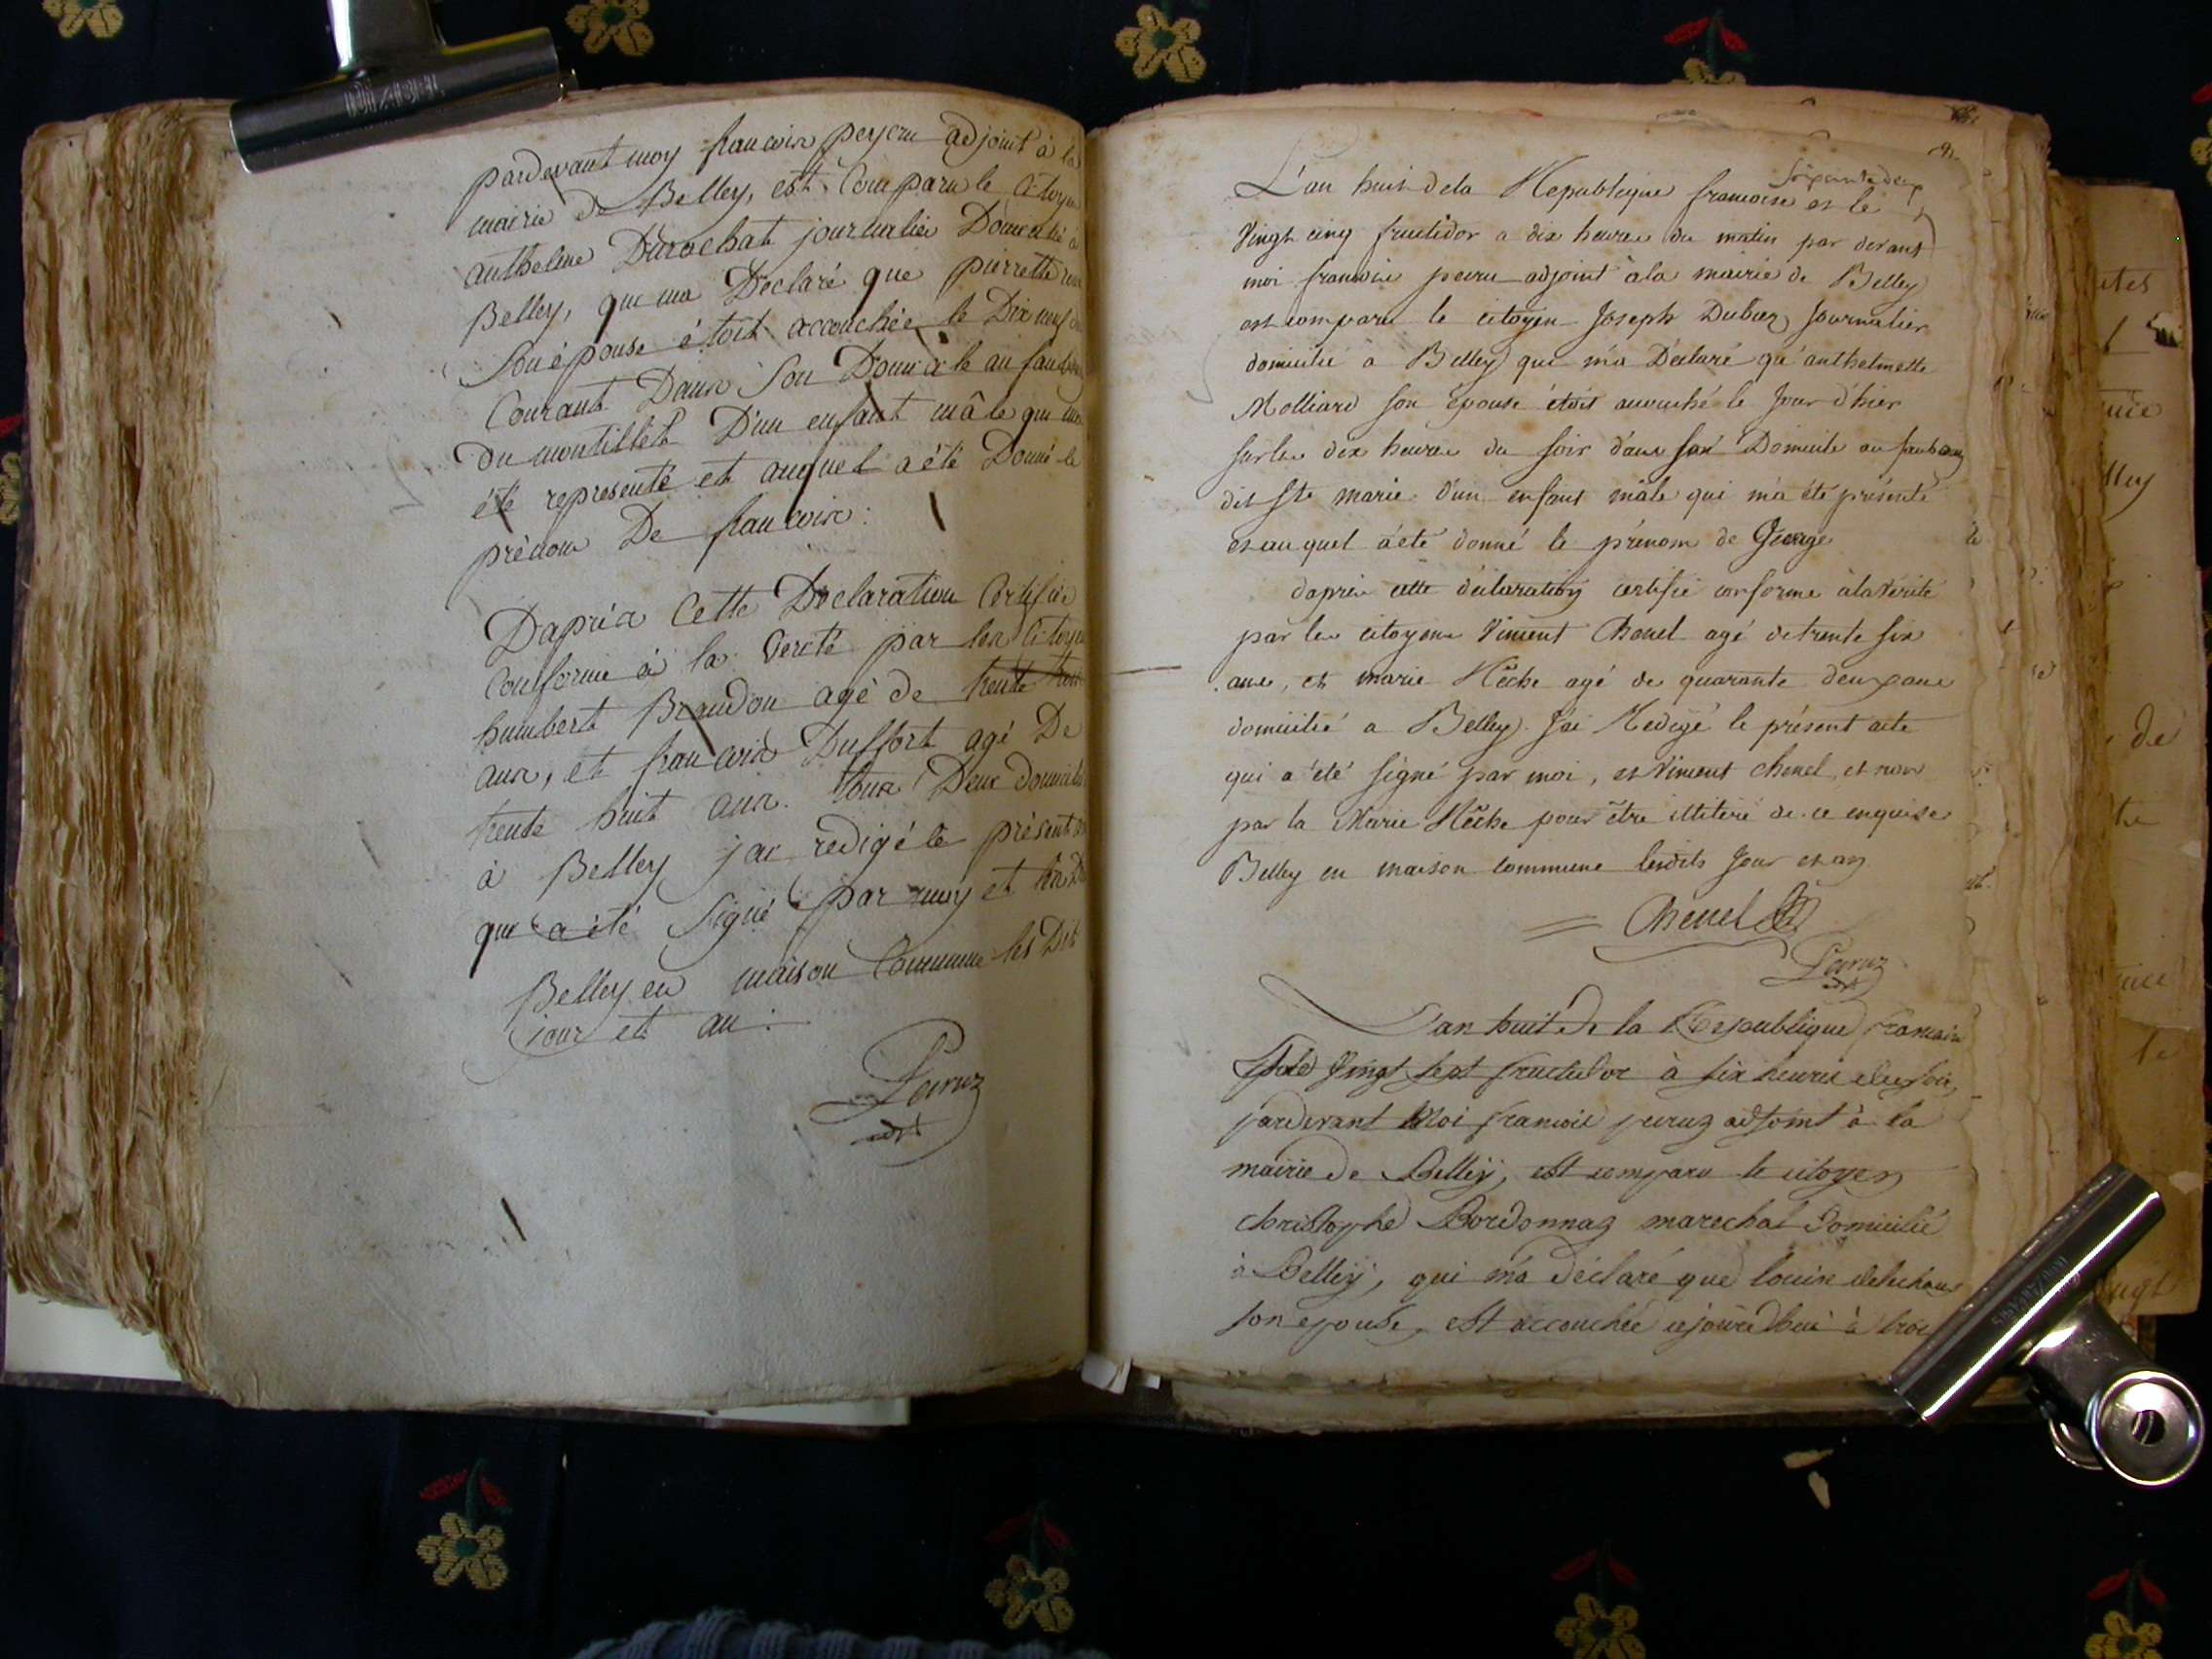 pardevant moy francois peycru adjoint à la
mairie de Belley, est Comparu le Citoyen
anthelme Durochat journalier Domicilié à
Belley, qui ma Declaré que pierrette
Son épouse étoit accouchée le Dix neuf du
Courant Dans Son Domicile au faubourg
du montillet D'un enfant mâle qui ma
été representé et auquel a été Donné le
prénom De francois :
Dapréa Cette Declaration Certifiée
Conforme à la Verité par les Citoyens
humbert Braudon agé de trente
ans, et francois Duffort agé De
trente huit ans. tous Deux domiciliés
à Belley jai redigé le présent
qui a été Signé par moy et
Belley en maison Commune les Dits
jour et an :
Soixante deux
L'an huit dela Republique francoise et le
Vingt cinq fructidor a dix heures du matin par devant
moi francois peiru adjoint àla mairie de Belley
est comparu le citoyen Joseph Dubiez Journalier
domicilié a Belley qui m'a Déclaré qu'anthelmette
Molliard son épouse étoit accouché le Jour d'hier
sur les dix heures du soir dans son Domicile au faubourg
dit Ste marie d'un enfant mâle qui m'a été présenté
et au quel a été donné le prénom de George
daprès cette déclaration certifié conforme àla Vérité
par les citoyens Vincent Chenel agé de trente six
ans, et marie Hêche agé de quarante deux ans
domicilié a Belley. J'ai Redigé le présent acte
qui a été signé par moi, et Vincent chenel, et non
par la Marie Hêche pour être illiteré de ce enquise
Belley en maison commune lesdits Jour et an
Chenel
L'an huit de la Republique francaise
et le Vingt sept fructidor à six heures du soir,
pardevant Moi francois peiruz adjoint à la
mairie de Belley, est comparu le citoyen
christophe Bordonnaz marechal Domicilié
à Belley, qui m'a déclaré que louise
son epouse, est accouchée cejourd'hui à trois